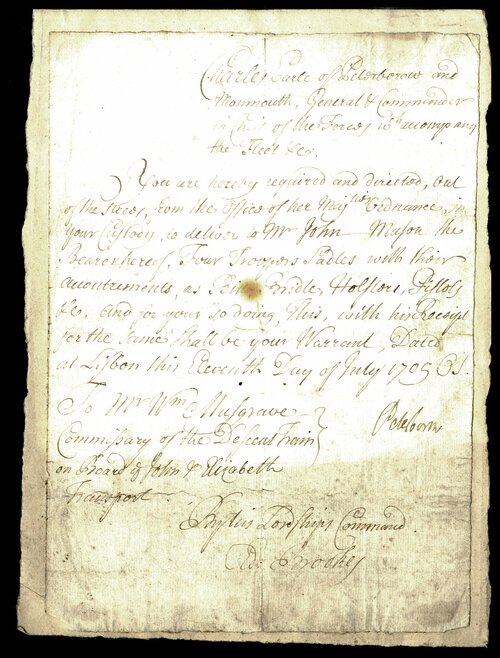 Charles Earle of Peterborow and
Monmouth, General & Commander
in Chief of the Forces wch accompany
the Fleet &c.
You are hereby required and directed, out
of the stores, from the Office of her Majties Ordnance, in
Your Custody, to deliver to Mr John Mason the
Bearer hereof, Four Troopers Sadles with their
accoutrements, as Bridle, Holsters, Pistols
&c. And for your so doing, this, with his Receipt
for the same shall be your Warrant, Dated
at Lisbon this Eleventh Day of July 1705 OS.
To Mr Wm Musgrave
Commissary of the Descent Train
on Board ye John & Elizabeth
Transport
Peterborow
By his Lordships Command